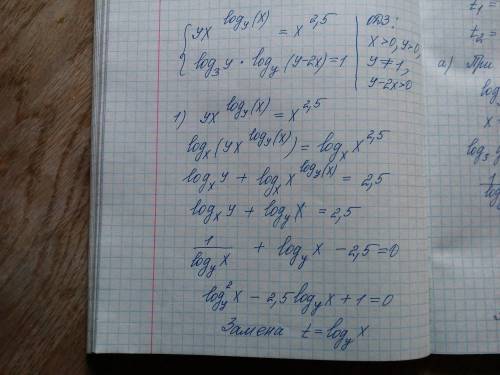 { yx^(log_y(x)) = x^(2,5)
log_3 y · log_y (y-2x) = 1
ОДЗ:
x>0, y>0,
y≠1,
y-2x>0
1) yx^(log_y(x)) = x^(2,5)
log_x (yx^(log_y(x))) = log_x x^(2,5)
log_x y + log_x x^(log_y(x)) = 2,5
log_x y + log_y x = 2,5
1/(log_y x) + log_y x - 2,5 = 0
log_y^2 x - 2,5 log_y x + 1 = 0
Замена t = log_y x
t_1 =
t_2 =
а) При
log
x =
log_3 y
1
log